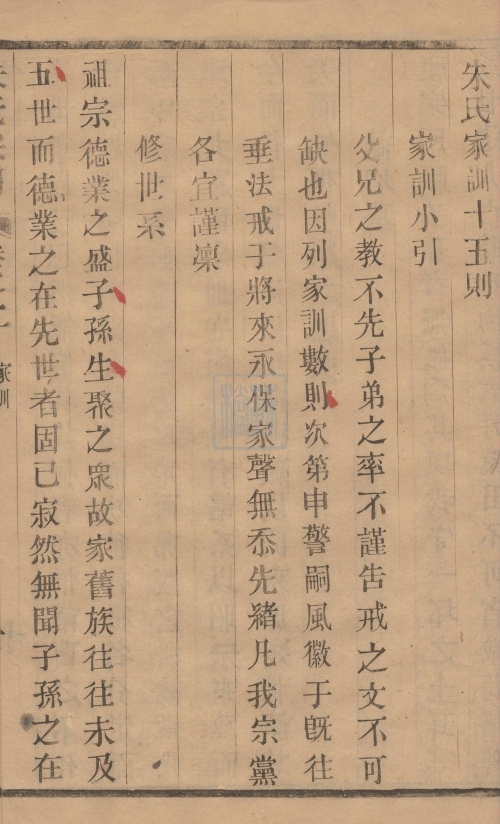 朱氏家訓十五則
家訓小引
父兄之教不先子弟之率不謹告戒之文不可
缺也因列家訓數則次第申警嗣風徽于旣往
垂法戒于將來永保家聲無忝先緒凡我宗黨
各宜謹凜
修世系
祖宗德業之盛子孫生聚之眾故家舊族往往未及
五世而德業之在先世者固已寂然無聞子孫之在
家訓